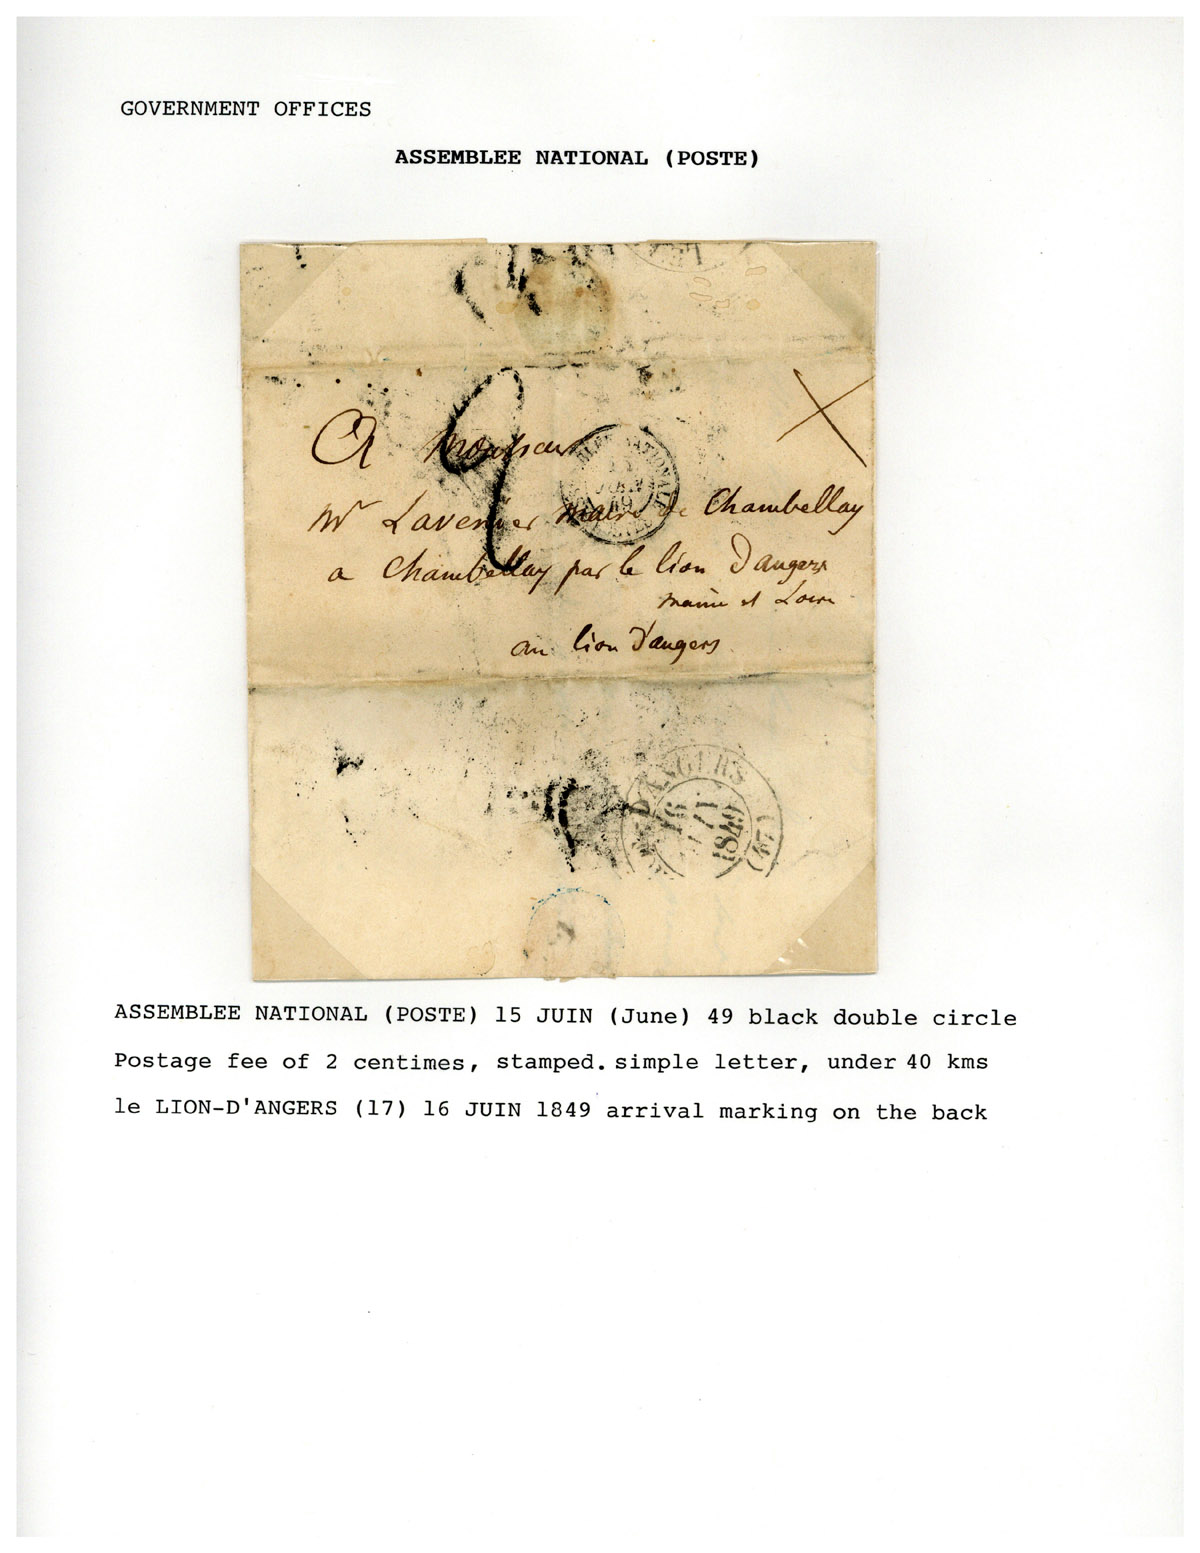 GOVERNMENT OFFICES
ASSEMBLEE NATIONAL (POSTE)
LE
A Monsieur
NATIONALE
15
JUIN
49
Mr Lavenier maire de Chambellay
a Chambellay par le lion D'angers
maine et Loire
au lion D'angers
D'ANGERS
16
1849
(47)
ASSEMBLEE NATIONAL (POSTE) 15 JUIN (June) 49 black double circle
Postage fee of 2 centimes, stamped. simple letter, under 40 kms
le LION-D'ANGERS (17) 16 JUIN 1849 arrival marking on the back